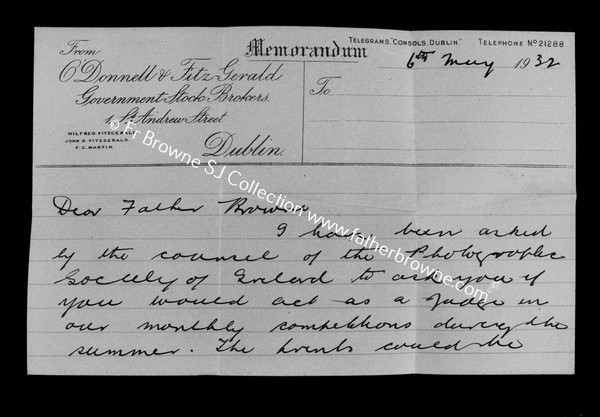 From
O'Donnell & FitzGerald
Government Stock Brokers.
1, St. Andrew Street
WILFRED FITZGERALD
JOHN D. FITZGERALD.
F. C. MARTIN
Dublin.
Memorandum
TELEGRAMS, "CONSOLS, DUBLIN" TELEPHONE No 21288
6th May 1932
To
Dear Father Browne
I have been asked
by the counsel of the Photographic
Society of Ireland to ask you if
you would act as a judge in
our monthly competitions during the
summer. The prints could be
© Fr Browne SJ Collection www.fatherbrowne.com